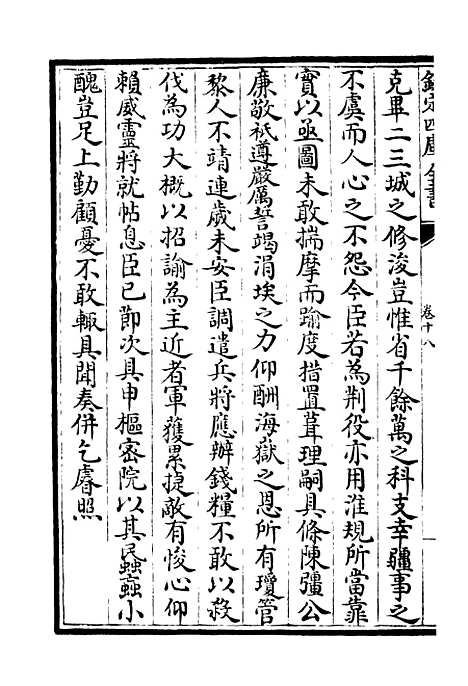 欽定四庫全書
卷十八
克畢二三城之修浚豈惟省千餘萬之科支幸疆事之
不虞而人心之不怨今臣若為荆役亦用淮規所當靠
實以亟圖未敢揣摩而踰度措置葺理嗣具條陳彊公
廉敬祗遵嚴厲誓竭涓埃之力仰酬海嶽之恩所有瓊管
黎人不靖連歲未安臣調遣兵將應辦錢糧不敢以殺
伐為功大概以招諭為主近者軍獲累捷敵有悛心仰
賴威靈將就帖息臣已節次具申樞密院以其民蝨蝨小
醜豈足上勤顧憂不敢輙具聞奏併乞睿照